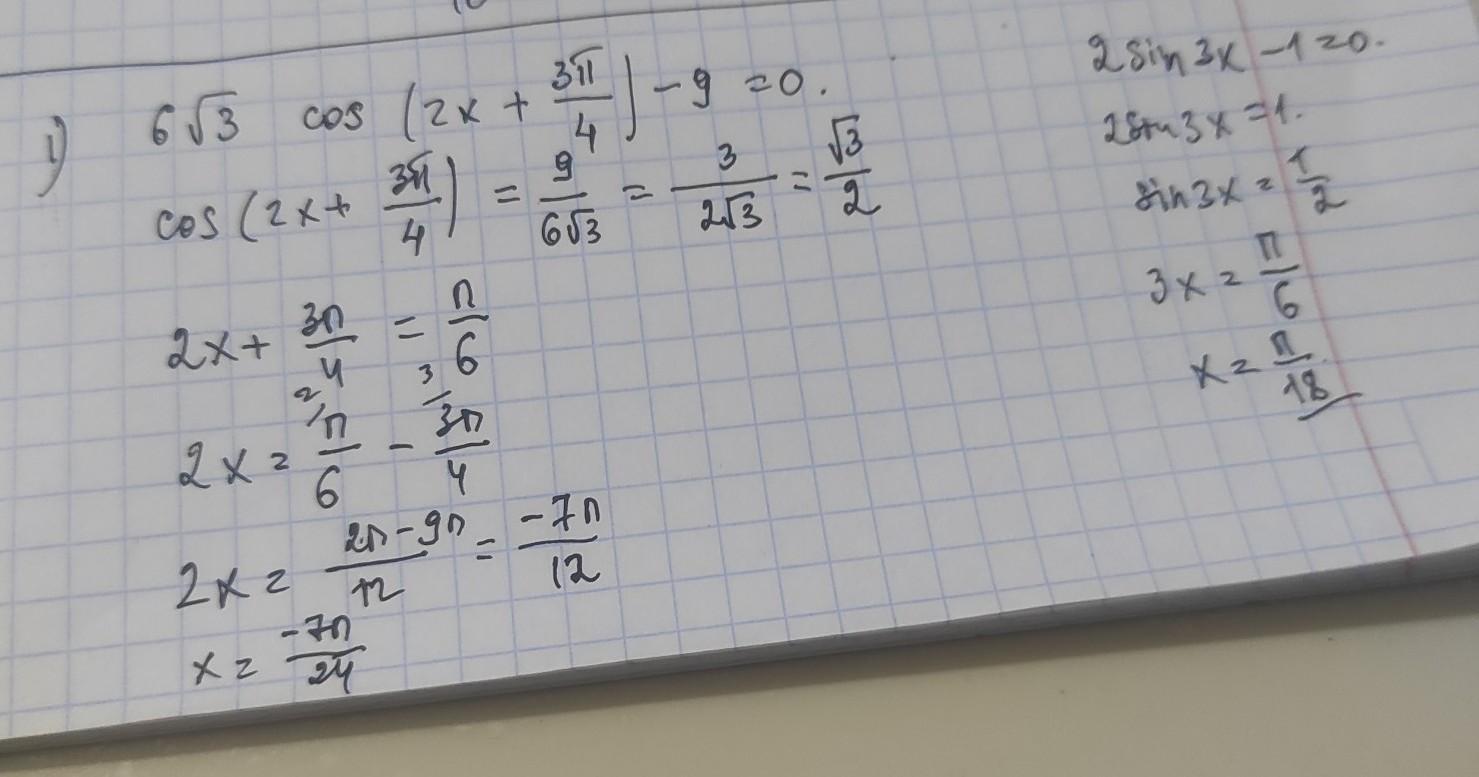 1) 6√3 cos (2x + 3π/4) - 9 = 0.
cos (2x + 3π/4) = 9/6√3 = 3/2√3 = √3/2
2x + 3π/4 = π/6
2x = π/6 - 3π/4
2x = 2π - 9π/12 = -7π/12
x = -7π/24
2 sin 3x - 1 = 0.
2 sin 3x = 1.
sin 3x = 1/2
3x = π/6
x = π/18